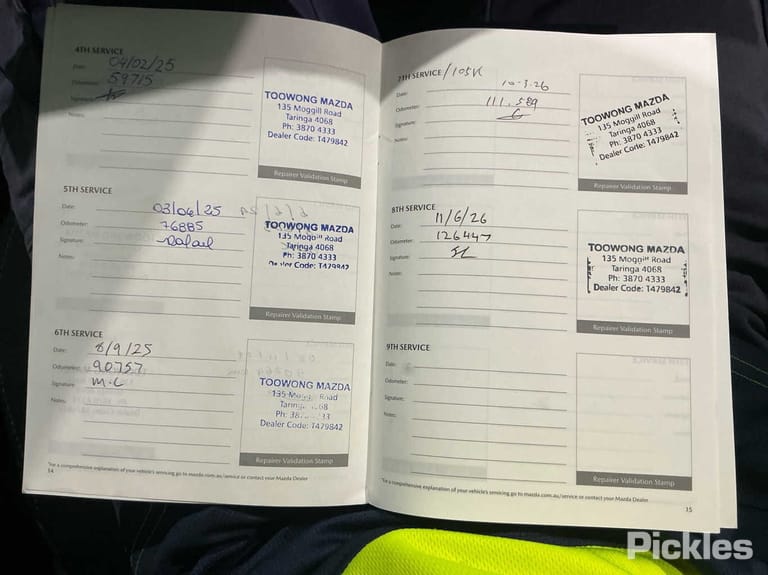 4TH SERVICE
Date: 04/02/25
Odometer: 59715
Signature:
Notes:
TOOWONG MAZDA
135 Moggill Road
Taringa 4068
Ph: 3870 4333
Dealer Code: T479842
Repairer Validation Stamp
5TH SERVICE
Date: 03/06/25
Odometer: 76885
Signature: Rafael
Notes:
TOOWONG MAZDA
135 Moggill Road
Taringa 4068
Ph: 3870 4333
Dealer Code: T479842
Repairer Validation Stamp
6TH SERVICE
Date: 8/9/25
Odometer: 90757
Signature: M.C
Notes:
TOOWONG MAZDA
135 Moggill Road
Taringa 4068
Ph: 38 33
Dealer Code: T479842
Repairer Validation Stamp
*For a comprehensive explanation of your vehicle's servicing go to mazda.com.au/service or contact your Mazda Dealer
14
7TH SERVICE / 105K
Date: 10-3.26
Odometer: 111.589
Signature:
Notes:
TOOWONG MAZDA
135 Moggill Road
Taringa 4068
Ph: 3870 4333
Dealer Code: T479842
Repairer Validation Stamp
8TH SERVICE
Date: 11/6/26
Odometer: 126447
Signature:
Notes:
TOOWONG MAZDA
135 Moggill Road
Taringa 4068
Ph: 3870 4333
Dealer Code: T479842
Repairer Validation Stamp
9TH SERVICE
Date:
Odometer:
Signature:
Notes:
Repairer Validation Stamp
*For a comprehensive explanation of your vehicle's servicing go to mazda.com.au/service or contact your Mazda Dealer
15
Pickles